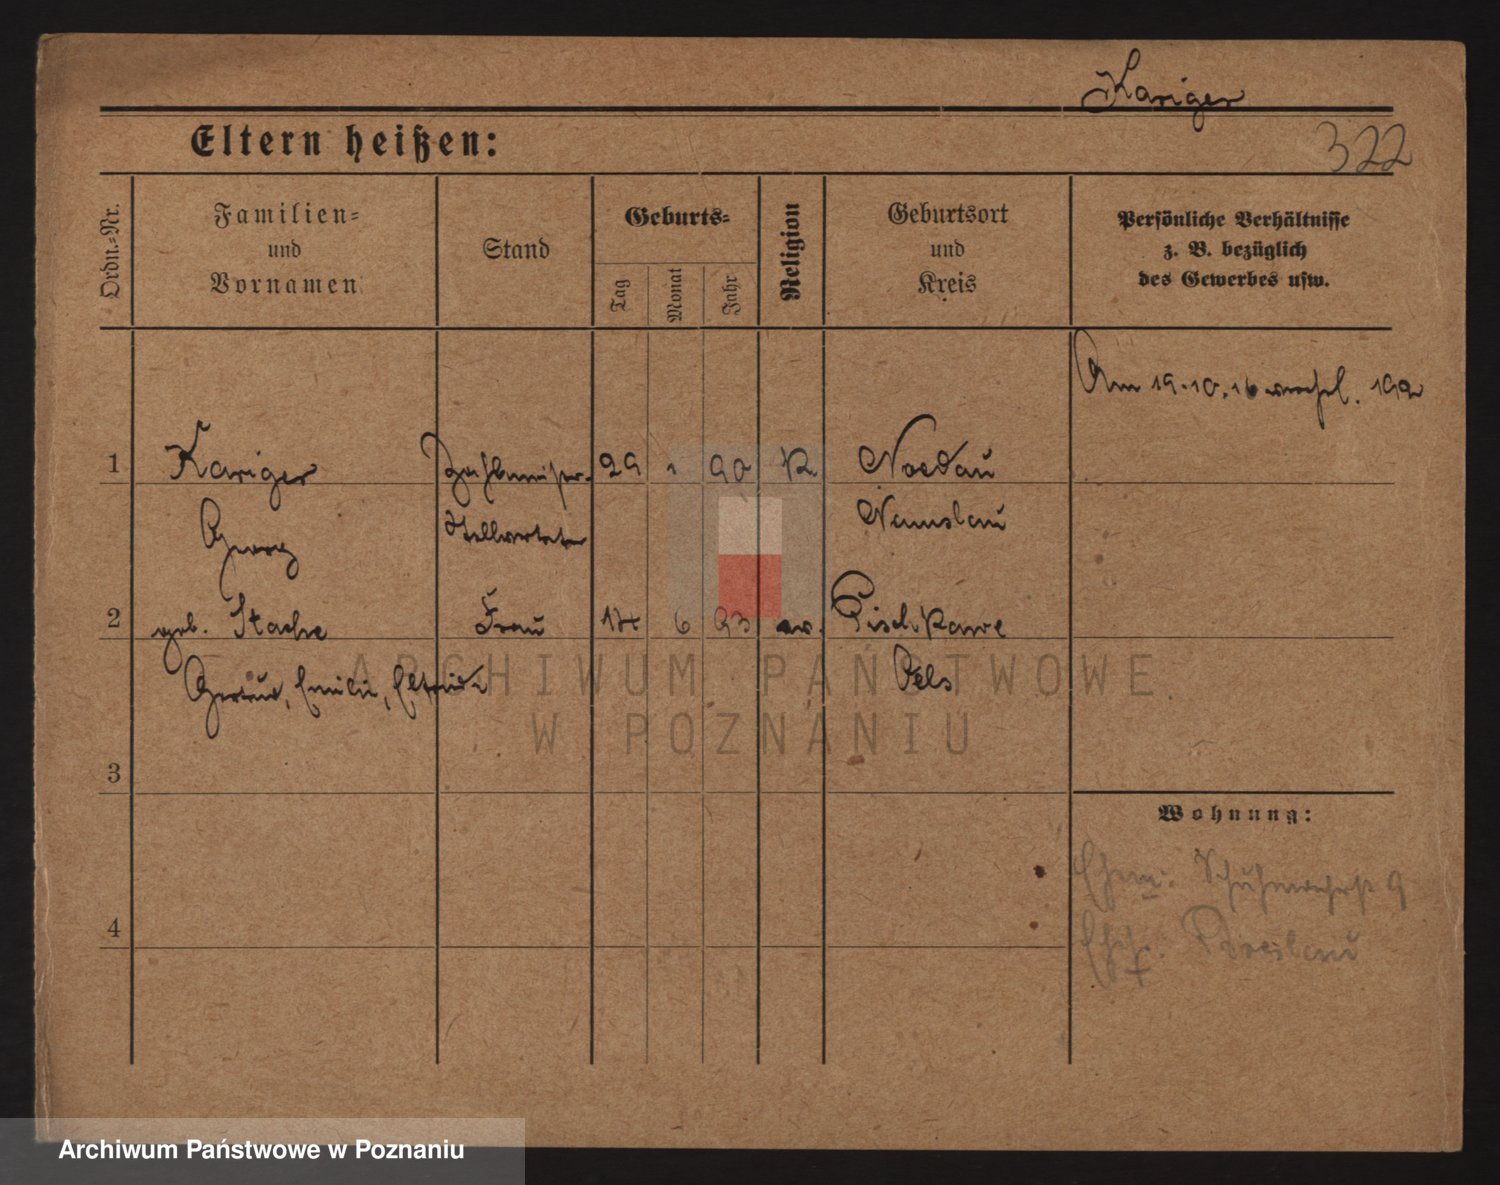 Kariger
322
Eltern heißen:
Ordn.-Nr.
Familien-
und
Vornamen
Stand
Geburts-
Tag
Monat
Jahr
Religion
Geburtsort
und
Kreis
Persönliche Verhältnisse
z. B. bezüglich
des Gewerbes usw.
Am 19.10.16
1 Kariger Zahlmeister- 29 1 90 K. Noldau
Georg Stellvertreter Namslau
2 geb. Stache Frau 14 6 93 ev. Pischkawe
Gertrud, Emilie, Elfriede Oels
3
4
Wohnung:
Ehem: 9
Ehef. Breslau
ARCHIWUM PAŃSTWOWE
W POZNANIU
Archiwum Państwowe w Poznaniu